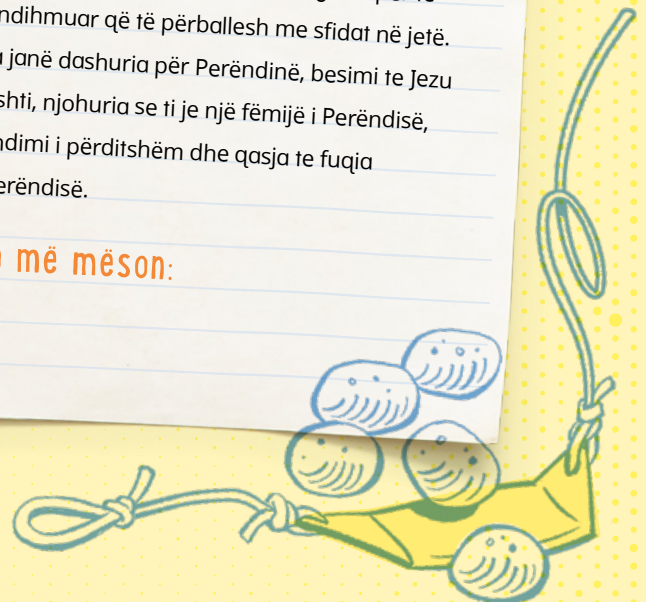 ndihmuar që të përballesh me sfidat në jetë.
janë dashuria për Perëndinë, besimi te Jezu
shti, njohuria se ti je një fëmijë i Perëndisë,
ndimi i përditshëm dhe qasja te fuqia
erëndisë.
më mëson: